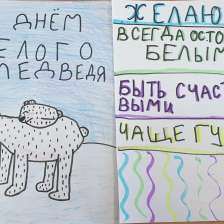 ДНЁМ
ЕЛОГО
МЕДВЕДЯ
ЖЕЛАЮ
ВСЕГДА ОСТО
БЕЛЫМ
БЫТЬ СЧАС
ВЫМИ
ЧАЩЕ ГУ